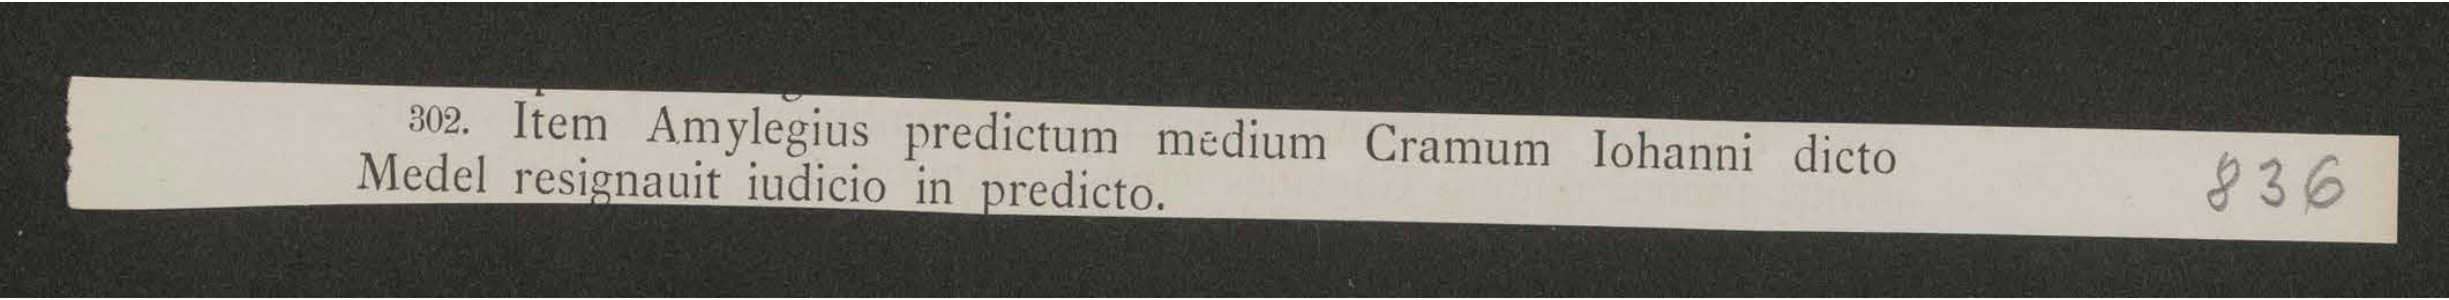 302. Item Amylegius predictum medium Cramum Iohanni dicto
Medel resignauit iudicio in predicto.
836